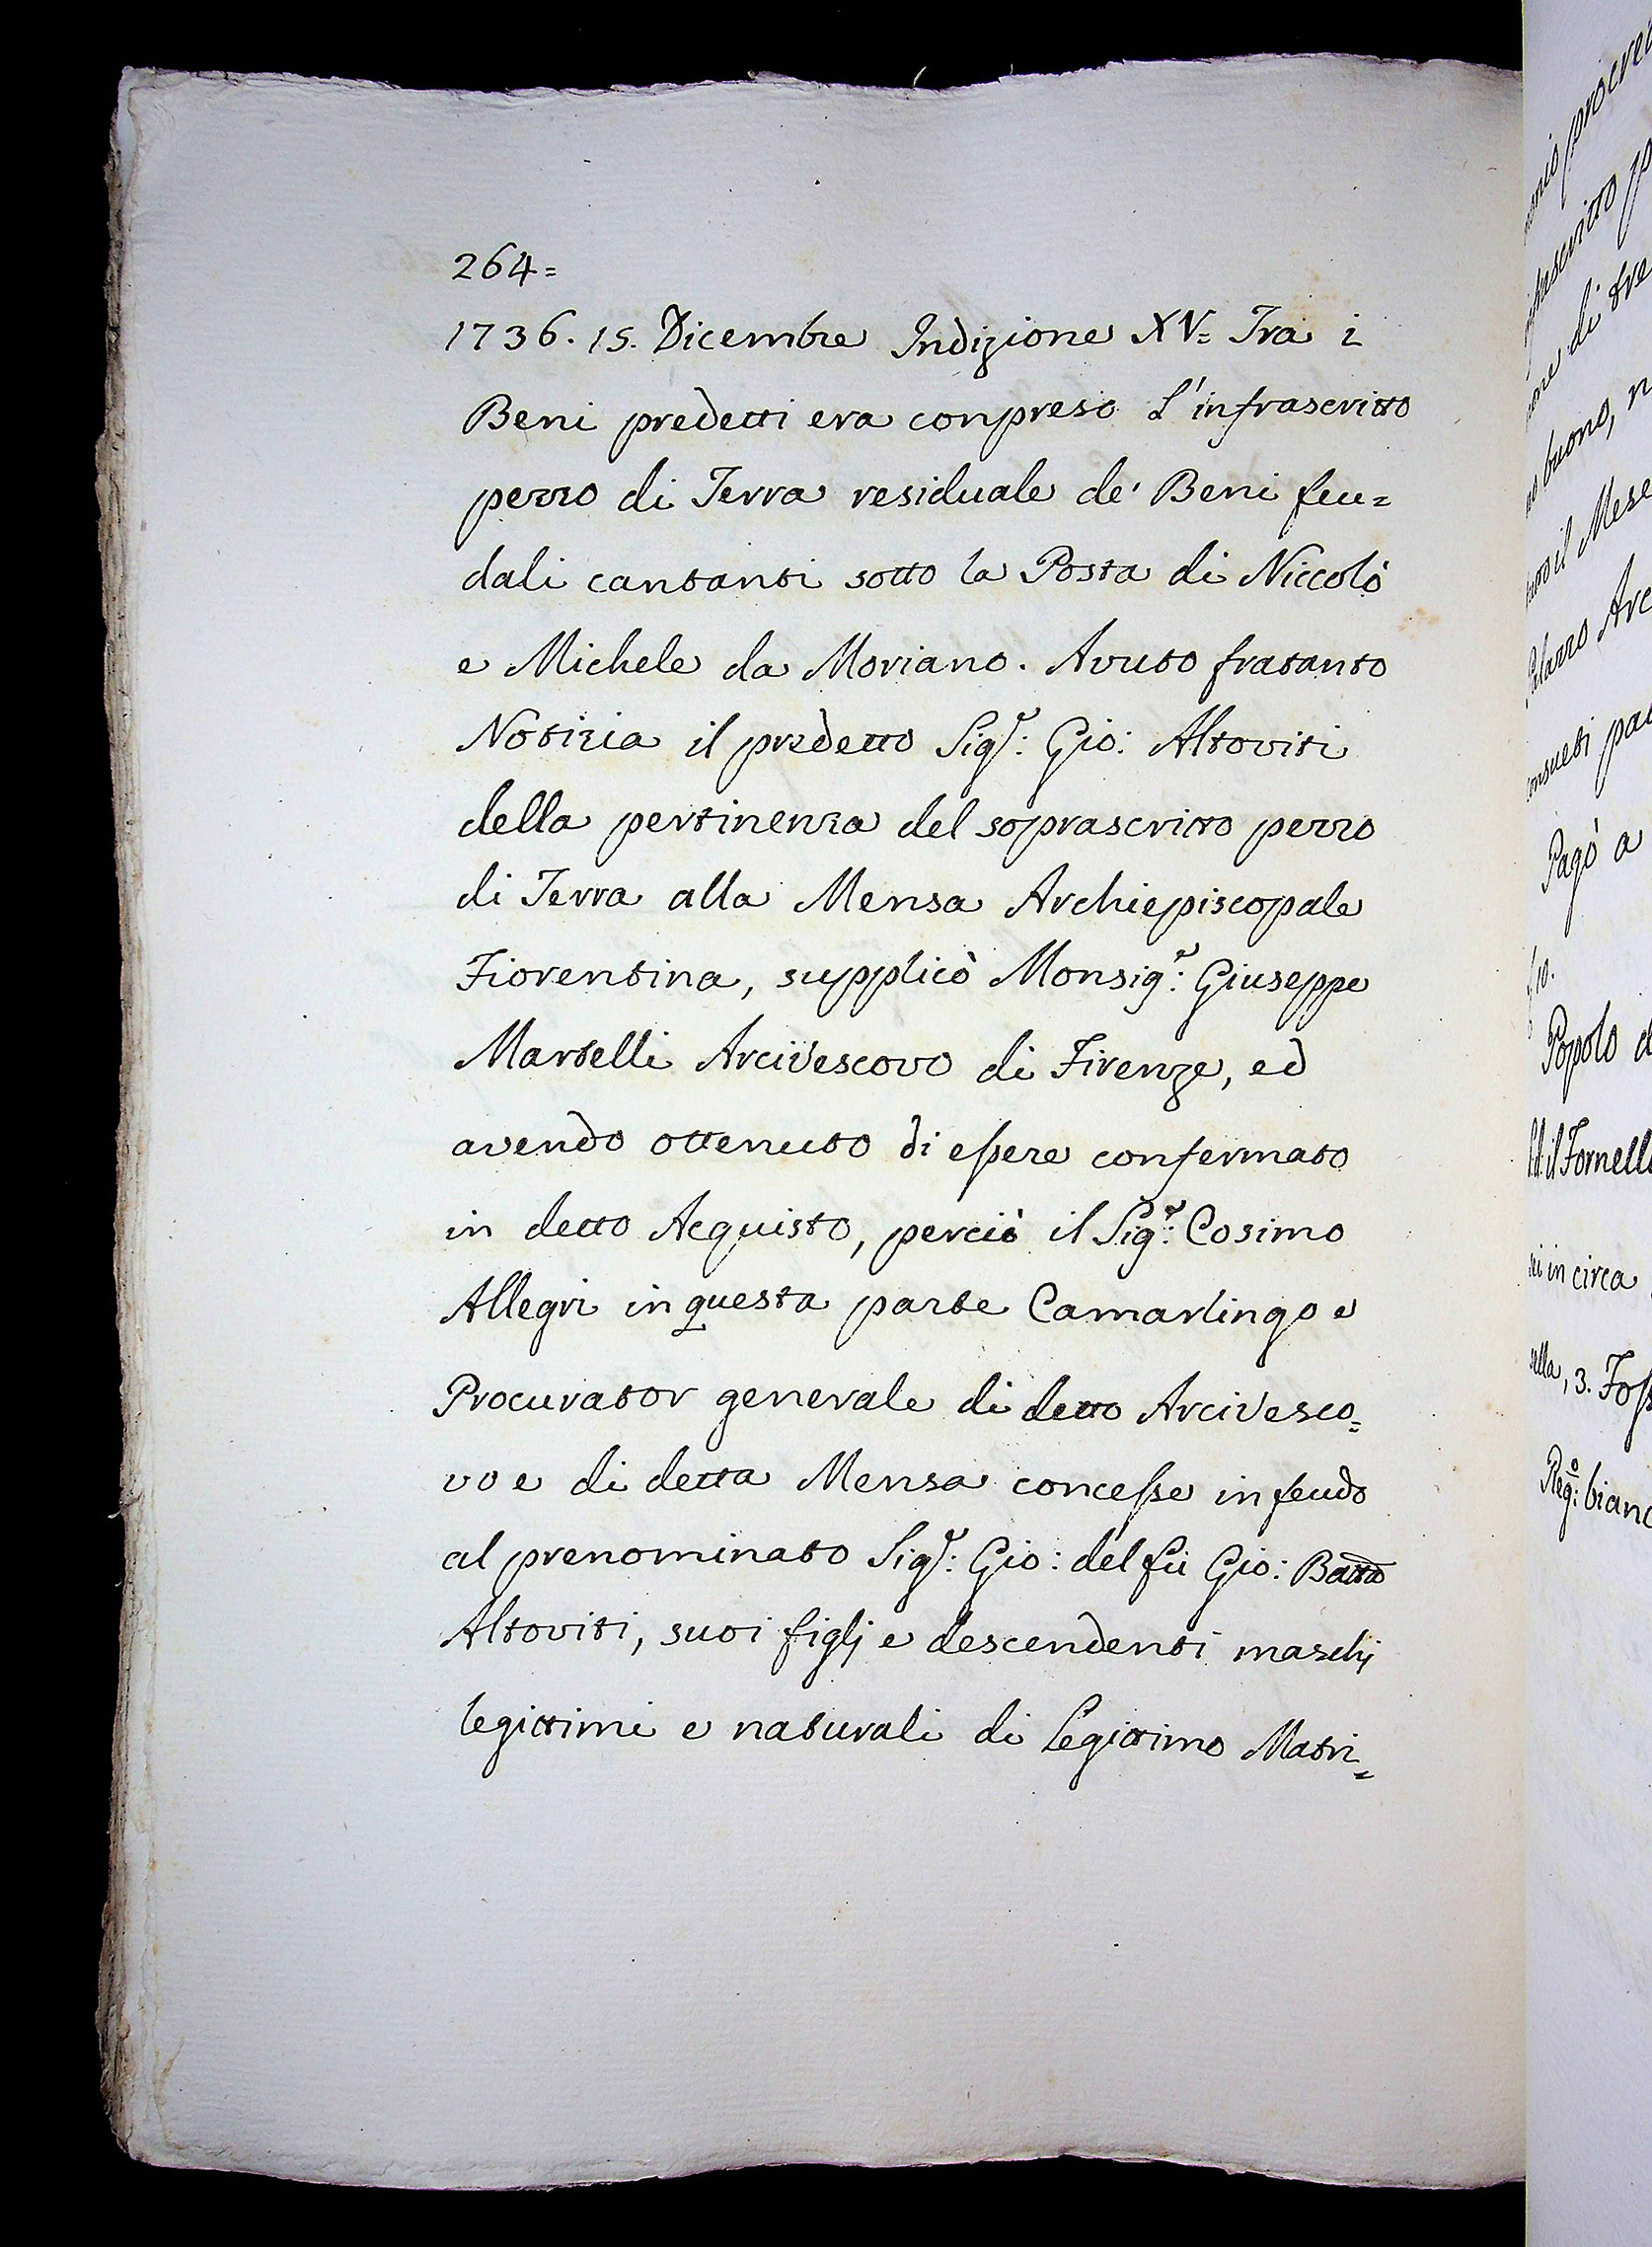 264=
1736. 15. Dicembre Indizione XV= Tra i
Beni predetti era conpreso L'infrascritto
pezzo di Terra residuale de' Beni feu=
dali cantanti sotto la Posta di Niccolò
e Michele da Moriano. Avuto fratanto
Notizia il predetto Sigr: Gio: Altoviti
della pertinenza del soprascritto pezzo
di Terra alla Mensa Archiepiscopale
Fiorentina, supplicò Monsigr: Giuseppe
Martelli Arcivescovo di Firenze, ed
avendo ottenuto di eſsere confermato
in detto Acquisto, perciò il Sigr: Cosimo
Allegri in questa parte Camarlingo e
Procurator generale di detto Arcivesco=
vo e di detta Mensa conceſse in feudo
al prenominato Sigr: Gio: del fù Gio: Batta
Altoviti, suoi figlj e descendenti maschj
legittimi e naturali di Legittimo Matri=
buono, n
il Mese
Pagò a
Popolo d
il Fornell
in circa
3. Foſs
Rego: bianc